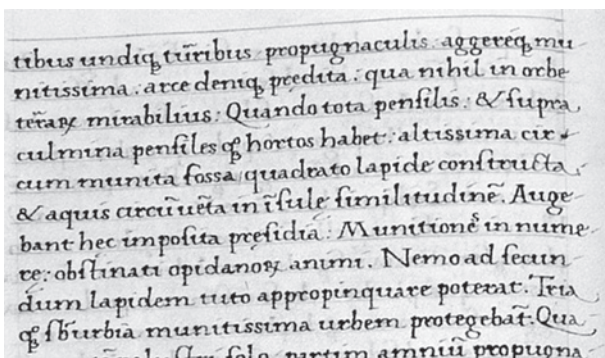 tibus undiq; tūribus propugnaculis aggereq; mu-
nitissima: arce deniq; predita: qua nihil in orbe
terraꝝ mirabilius: Quando tota pensilis: & supra
culmina pensiles qꝫ hortos habet: altissima cir-
cum munita fossa quadrato lapide constructa,
& aquis circūuēta in īsule similitudinē. Auge-
bant hec imposita presidia: Munitionē in nume-
re: obstinati opidanoꝝ animi. Nemo ad secun-
dum lapidem tuto appropinquare poterat. Tria
qꝫ sburbia munitissima urbem protegebāt: Qua-
solo partim amniū propugna-